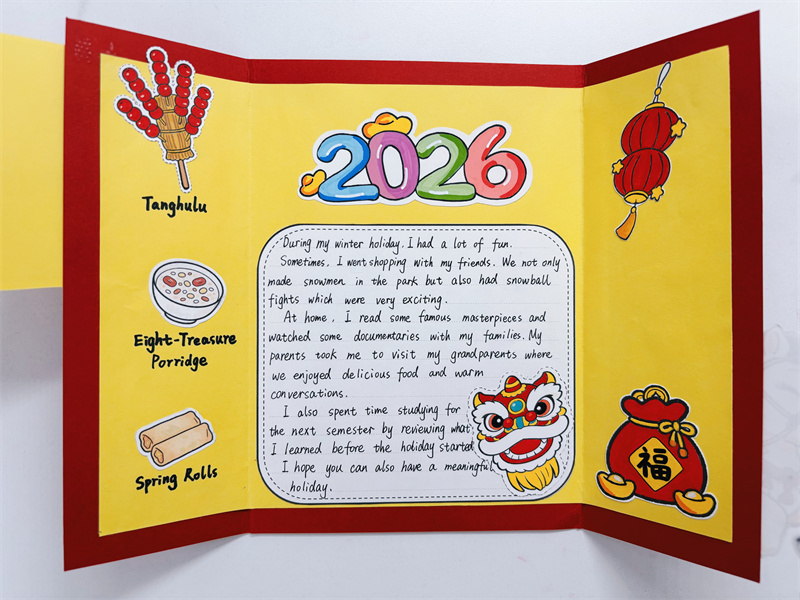 Tanghulu
Eight-Treasure
Porridge
Spring Rolls
2026
During my winter holiday, I had a lot of fun.
Sometimes, I went shopping with my friends. We not only
made snowmen in the park but also had snowball
fights which were very exciting.
At home, I read some famous masterpieces and
watched some documentaries with my families. My
parents took me to visit my grandparents where
we enjoyed delicious food and warm
conversations.
I also spent time studying for
the next semester by reviewing what
I learned before the holiday started
I hope you can also have a meaningful
holiday.
福